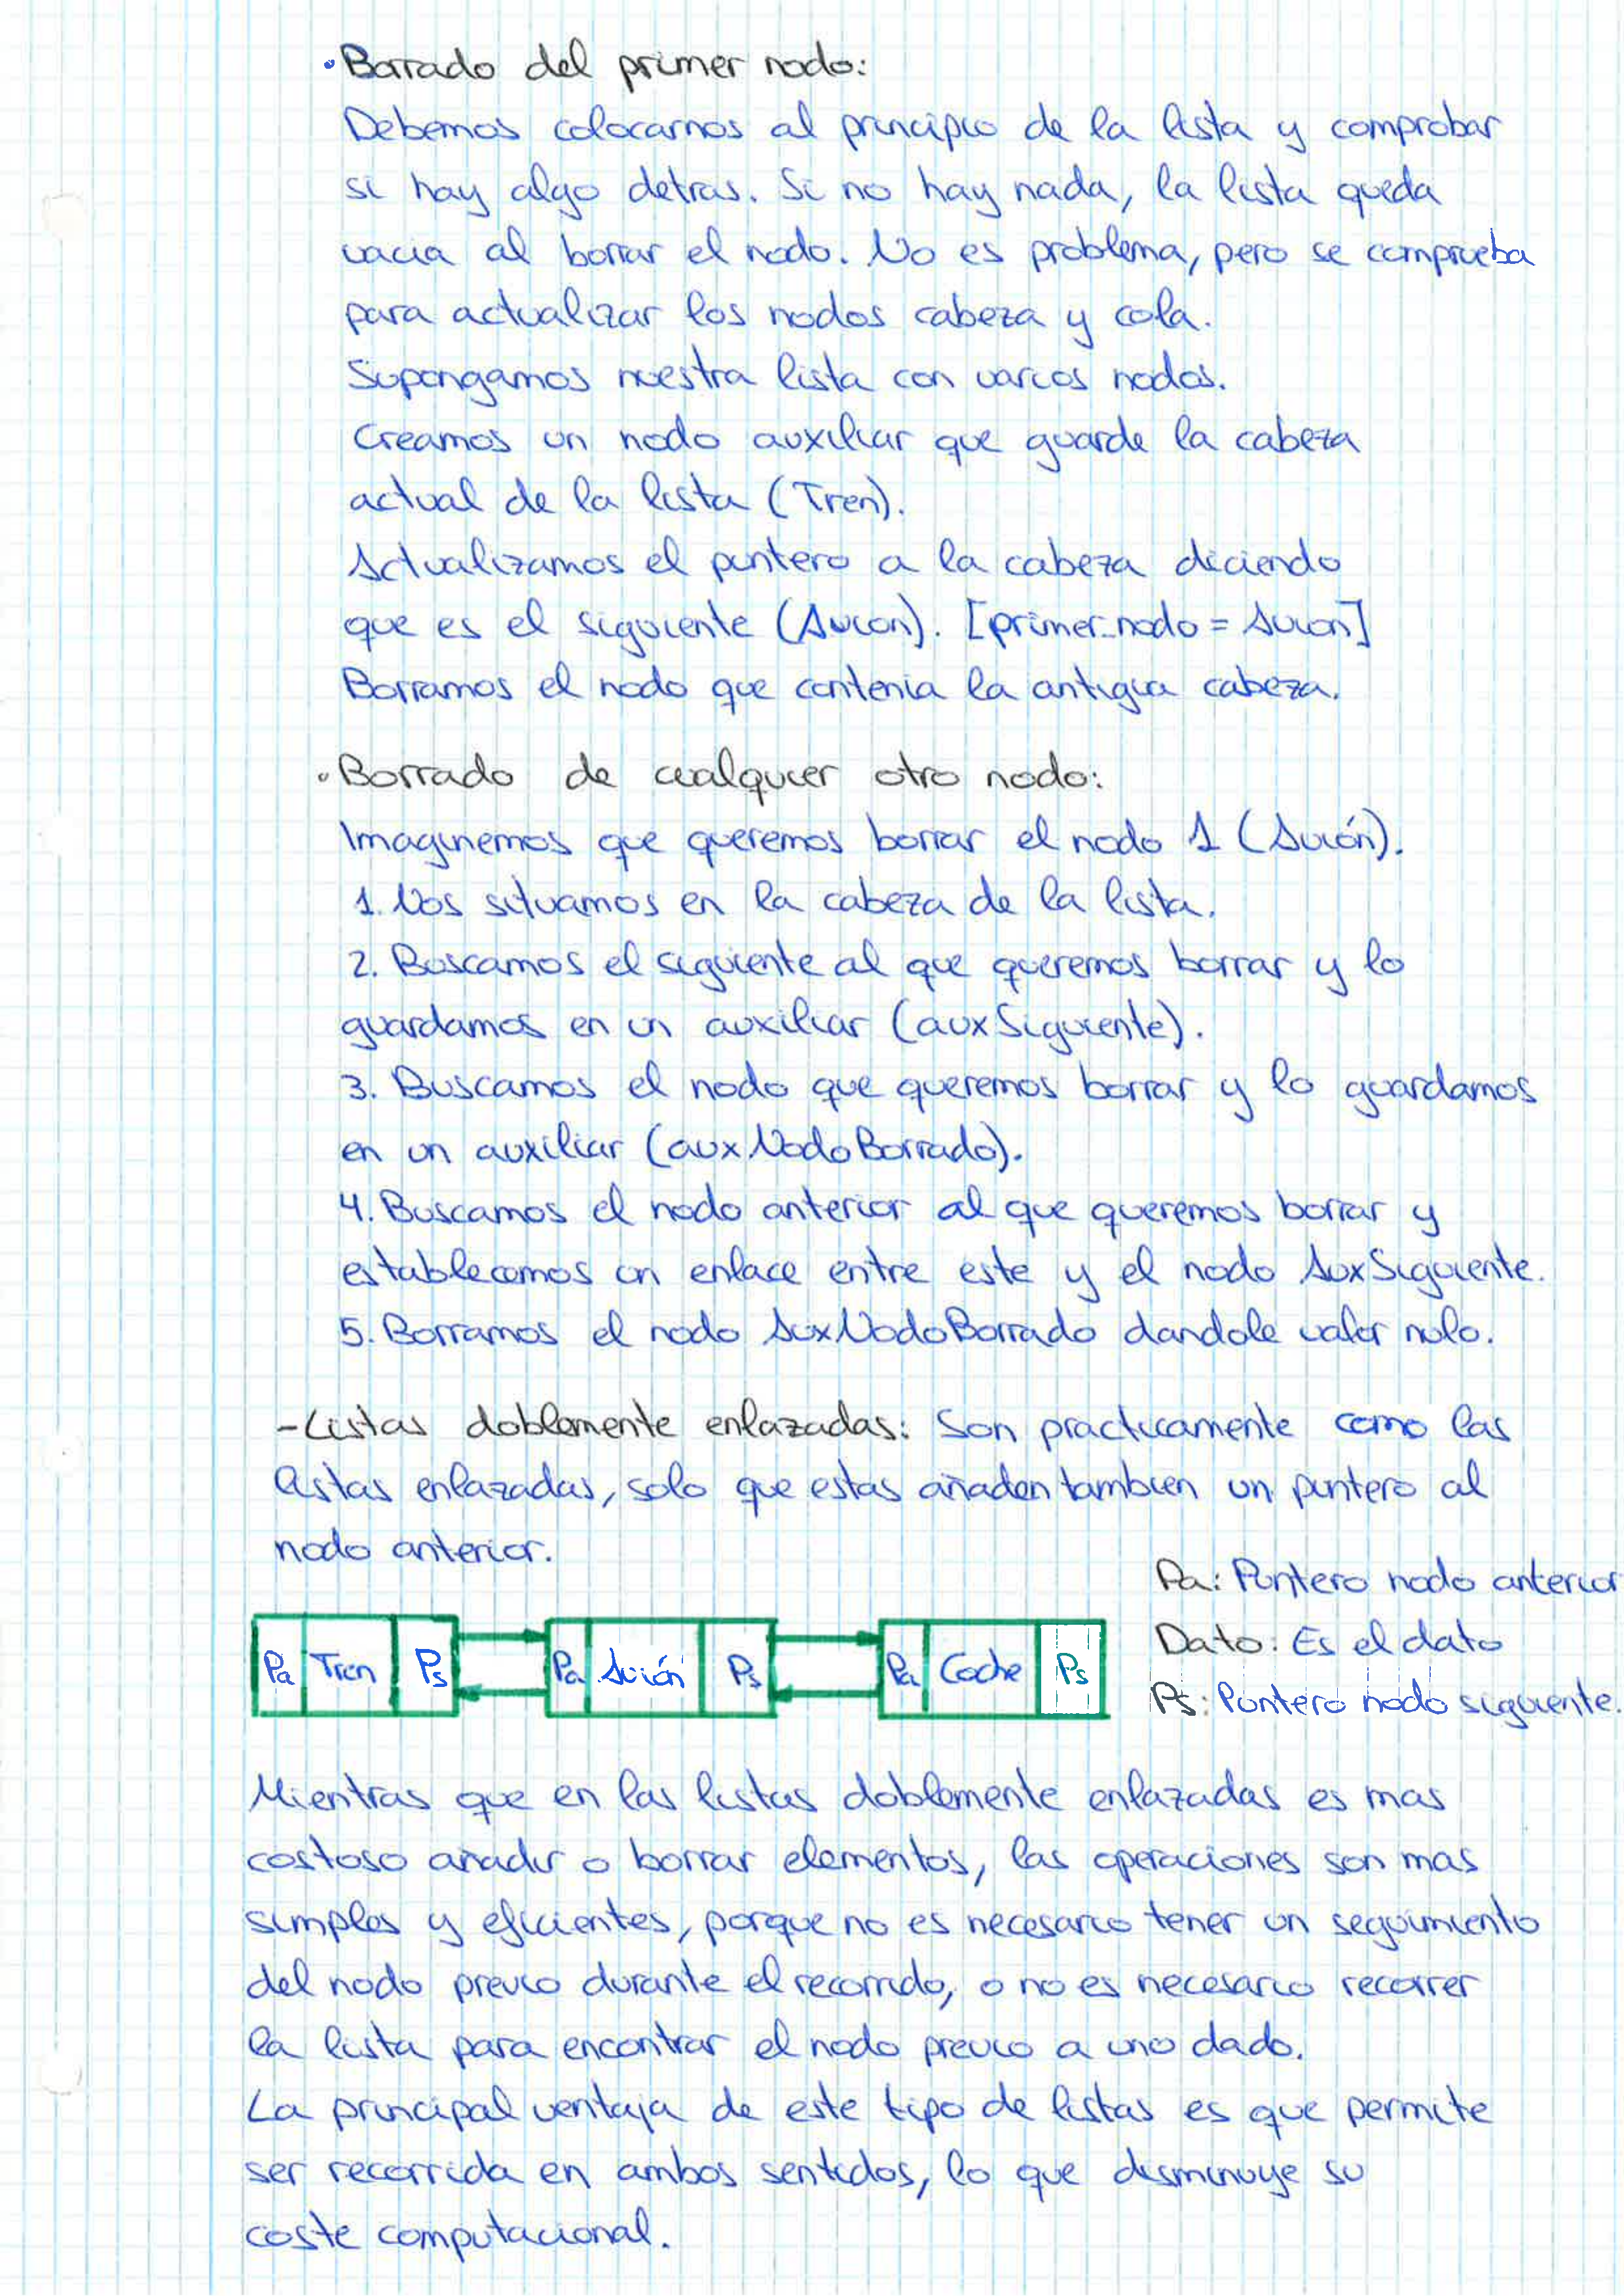 · Borrado del primer nodo:
Debemos colocarnos al principio de la lista y comprobar
si hay algo detras. Si no hay nada, la lista queda
vacia al borrar el nodo. No es problema, pero se comprueba
para actualizar los nodos cabeza y cola.
Supongamos nuestra lista con varios nodos.
Creamos un nodo auxiliar que guarde la cabeza
actual de la lista (Tren).
Actualizamos el puntero a la cabeza diciendo
que es el siguiente (Avion). [primer_nodo = Avion]
Borramos el nodo que contenia la antigua cabeza.
· Borrado de cualquier otro nodo:
Imaginemos que queremos borrar el nodo 1 (Avión).
1. Nos situamos en la cabeza de la lista.
2. Buscamos el siguiente al que queremos borrar y lo
guardamos en un auxiliar (auxSiguiente).
3. Buscamos el nodo que queremos borrar y lo guardamos
en un auxiliar (auxNodoBorrado).
4. Buscamos el nodo anterior al que queremos borrar y
establecemos un enlace entre este y el nodo AuxSiguiente.
5. Borramos el nodo AuxNodoBorrado dandole valor nulo.
- Listas doblemente enlazadas: Son practicamente como las
listas enlazadas, solo que estas añaden tambien un puntero al
nodo anterior.
Pa: Puntero nodo anterior
Dato: Es el dato
Ps: Puntero nodo siguiente.
Pa Tren Ps Pa Avión Ps Pa Coche Ps
Mientras que en las listas doblemente enlazadas es mas
costoso añadir o borrar elementos, las operaciones son mas
simples y eficientes, porque no es necesario tener un seguimiento
del nodo previo durante el recorrido, o no es necesario recorrer
la lista para encontrar el nodo previo a uno dado.
La principal ventaja de este tipo de listas es que permite
ser recorrida en ambos sentidos, lo que disminuye su
coste computacional.